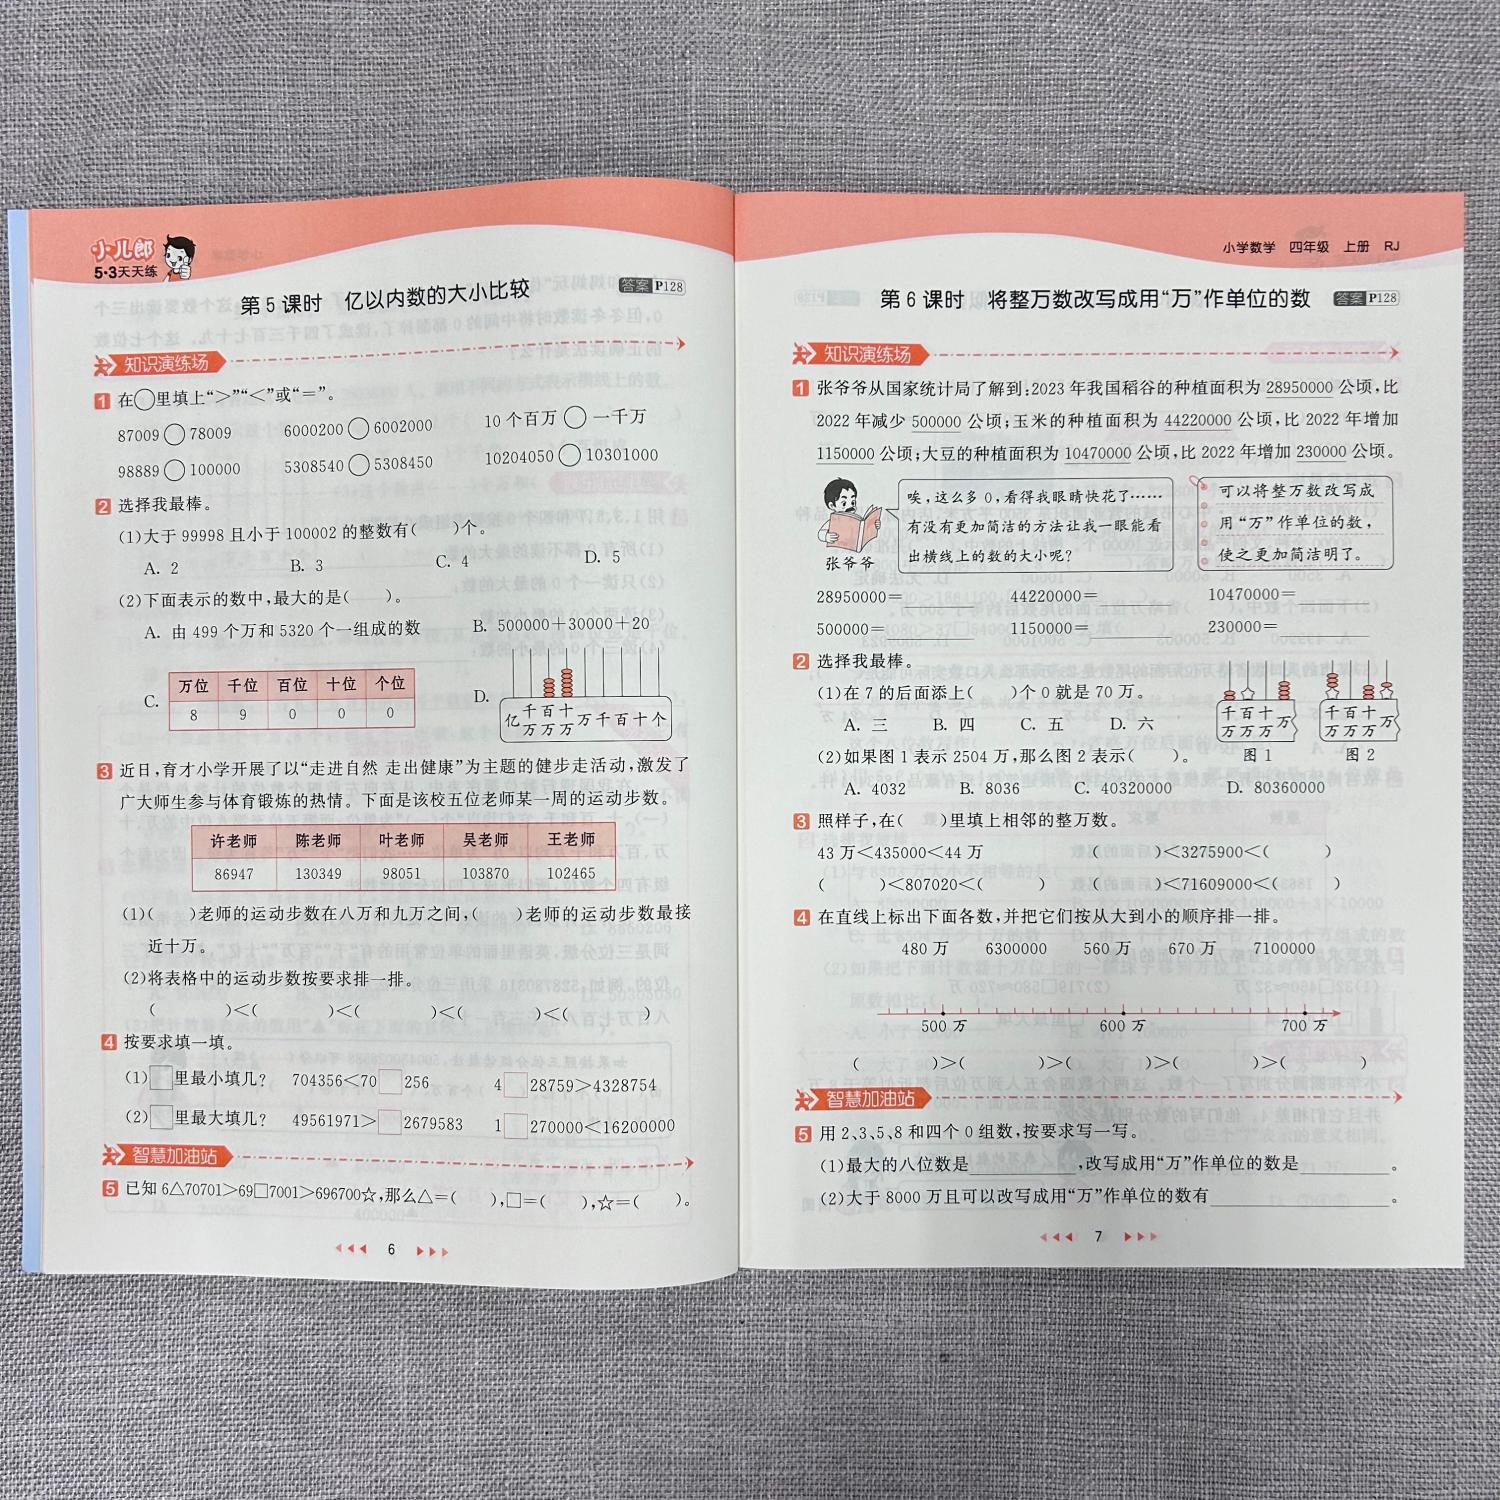 小儿郎
5·3天天练
第 5 课时 亿以内数的大小比较
答案 P128
知识演练场
1 在○里填上“>”“<”或“=”。
87009○78009 6000200○6002000 10 个百万○一千万
98889○100000 5308540○5308450 10204050○10301000
2 选择我最棒。
(1)大于 99998 且小于 100002 的整数有( )个。
A. 2 B. 3 C. 4 D. 5
(2)下面表示的数中,最大的是( )。
A. 由 499 个万和 5320 个一组成的数 B. 500000+30000+20
C. 万位 千位 百位 十位 个位
8 9 0 0 0
D. 亿 千万 百万 十万 万 千 百 十 个
3 近日,育才小学开展了以“走进自然 走出健康”为主题的健步走活动,激发了
广大师生参与体育锻炼的热情。下面是该校五位老师某一周的运动步数。
许老师 陈老师 叶老师 吴老师 王老师
86947 130349 98051 103870 102465
(1)( )老师的运动步数在八万和九万之间,( )老师的运动步数最接
近十万。
(2)将表格中的运动步数按要求排一排。
( )<( )<( )<( )<( )
4 按要求填一填。
(1)□里最小填几? 704356<70□256 4□28759>4328754
(2)□里最大填几? 49561971>□2679583 1□270000<16200000
智慧加油站
5 已知 6△70701>69□7001>696700☆,那么△=( ),□=( ),☆=( )。
6
小学数学 四年级 上册 RJ
第 6 课时 将整万数改写成用“万”作单位的数
答案 P128
知识演练场
1 张爷爷从国家统计局了解到:2023 年我国稻谷的种植面积为 28950000 公顷,比
2022 年减少 500000 公顷;玉米的种植面积为 44220000 公顷,比 2022 年增加
1150000 公顷;大豆的种植面积为 10470000 公顷,比 2022 年增加 230000 公顷。
唉,这么多 0,看得我眼睛快花了……
有没有更加简洁的方法让我一眼能看
出横线上的数的大小呢?
张爷爷
可以将整万数改写成
用“万”作单位的数,
使之更加简洁明了。
28950000=______ 44220000=______ 10470000=______
500000=______ 1150000=______ 230000=______
2 选择我最棒。
(1)在 7 的后面添上( )个 0 就是 70 万。
A. 三 B. 四 C. 五 D. 六
(2)如果图 1 表示 2504 万,那么图 2 表示( )。
A. 4032 B. 8036 C. 40320000 D. 80360000
千万 百万 十万 万
图 1
千万 百万 十万 万
图 2
3 照样子,在( )里填上相邻的整万数。
43 万<435000<44 万 ( )<3275900<( )
( )<807020<( ) ( )<71609000<( )
4 在直线上标出下面各数,并把它们按从大到小的顺序排一排。
480 万 6300000 560 万 670 万 7100000
500 万 600 万 700 万
( )>( )>( )>( )>( )
智慧加油站
5 用 2、3、5、8 和四个 0 组数,按要求写一写。
(1)最大的八位数是______,改写成用“万”作单位的数是______。
(2)大于 8000 万且可以改写成用“万”作单位的数有______。
7